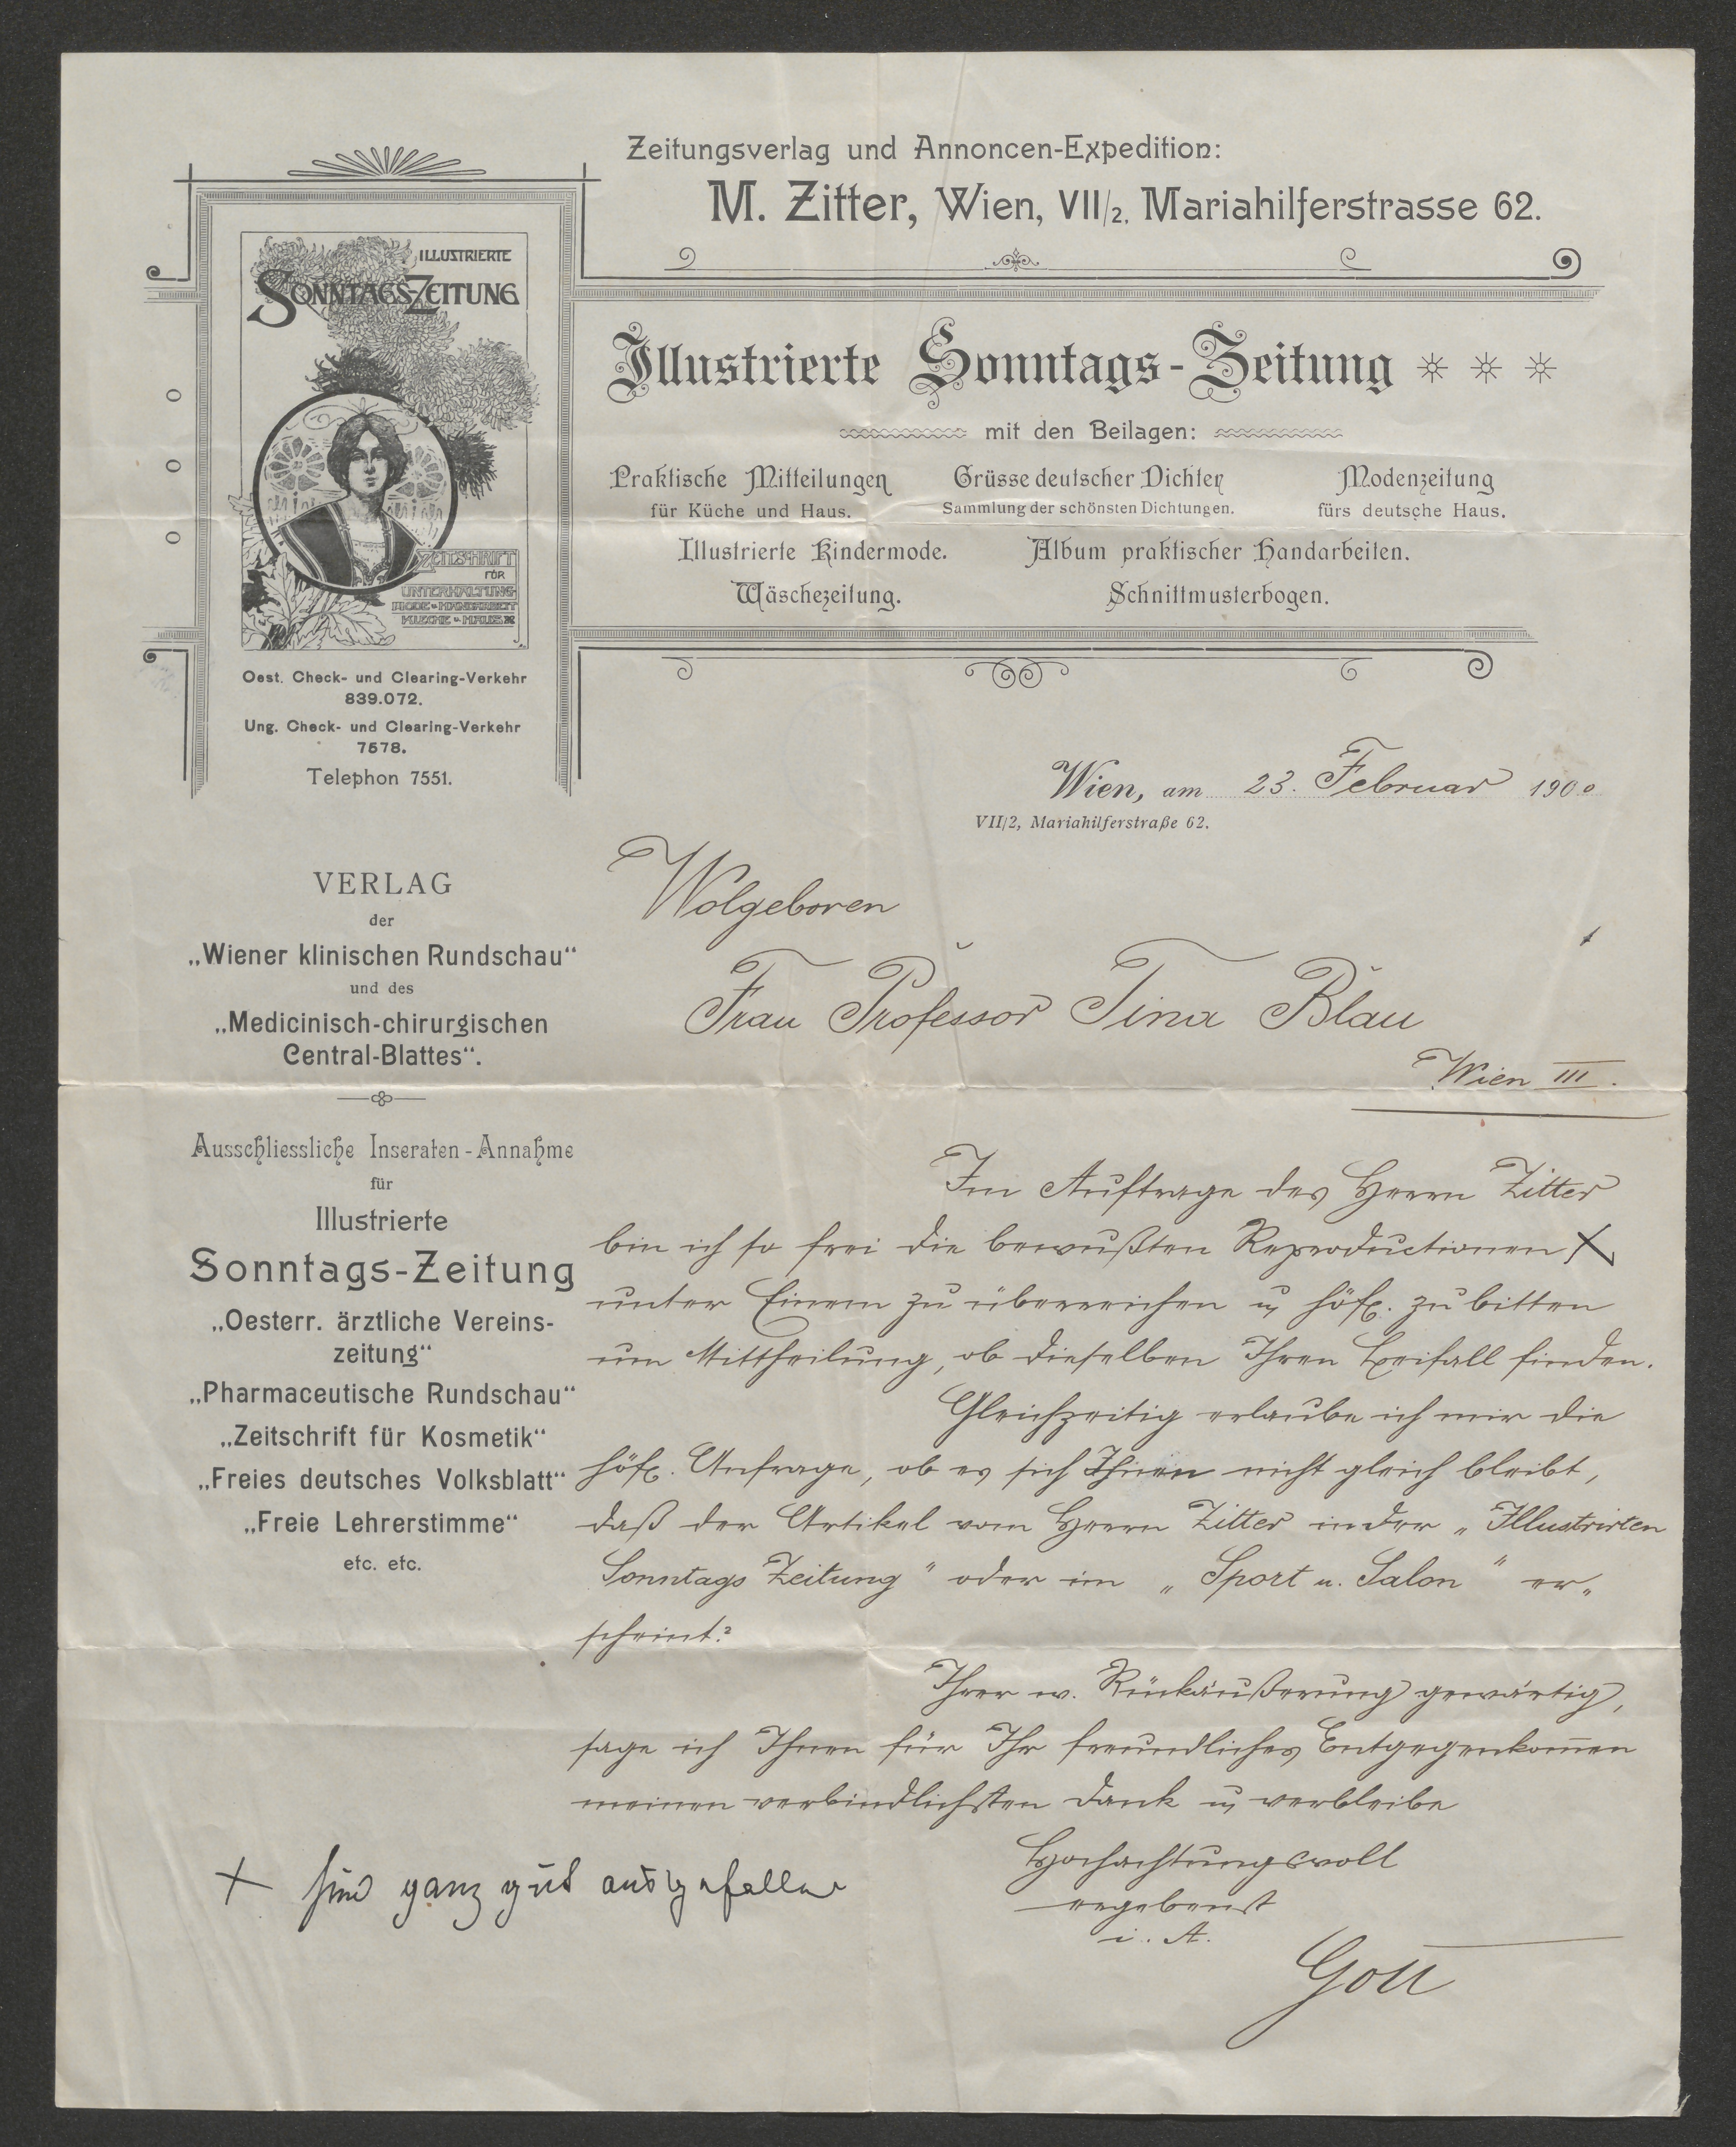 Zeitungsverlag und Annoncen-Expedition:
M. Zitter, Wien, VII/2, Mariahilferstrasse 62.
ILLUSTRIERTE
SONNTAGS-ZEITUNG
ZEITSCHRIFT
FÜR
UNTERHALTUNG
MODE u HANDARBEIT
KUECHE u HAUS
Illustrierte Sonntags-Zeitung
mit den Beilagen:
Praktische Mitteilungen
für Küche und Haus.
Grüsse deutscher Dichter
Sammlung der schönsten Dichtungen.
Modenzeitung
fürs deutsche Haus.
Illustrierte Kindermode. Album praktischer Handarbeiten.
Wäschezeitung. Schnittmusterbogen.
Oest. Check- und Clearing-Verkehr
839.072.
Ung. Check- und Clearing-Verkehr
7578.
Telephon 7551.
VERLAG
der
„Wiener klinischen Rundschau“
und des
„Medicinisch-chirurgischen
Central-Blattes“.
Ausschliessliche Inseraten-Annahme
für
Illustrierte
Sonntags-Zeitung
„Oesterr. ärztliche Vereins-
zeitung“
„Pharmaceutische Rundschau“
„Zeitschrift für Kosmetik“
„Freies deutsches Volksblatt“
„Freie Lehrerstimme“
etc. etc.
Wien, am 23. Februar 1900
VII/2, Mariahilferstraße 62.
Wolgeboren
Frau Professor Tina Blau
Wien III.
Im Auftrage des Herrn Zitter
bin ich so frei die bewußten Reproductionen X
unter Einem zu überreichen u höfl. zu bitten
um Mittheilung, ob dieselben Ihren Beifall finden.
Gleichzeitig erlaube ich mir die
höfl. Anfrage, ob es sich Ihnen nicht gleich bleibt,
daß der Artikel vom Herrn Zitter in der „Illustrirten
Sonntags Zeitung" oder im „Sport u. Salon" er„
scheint?
Ihrer w. Rückäußerung gewärtig,
sage ich Ihnen für Ihr freundliches Entgegenkom̅en
meinen verbindlichsten Dank u verbleibe
Hochachtungsvoll
ergebenst
i. A.
Gott
X sind ganz gut ausgefallen